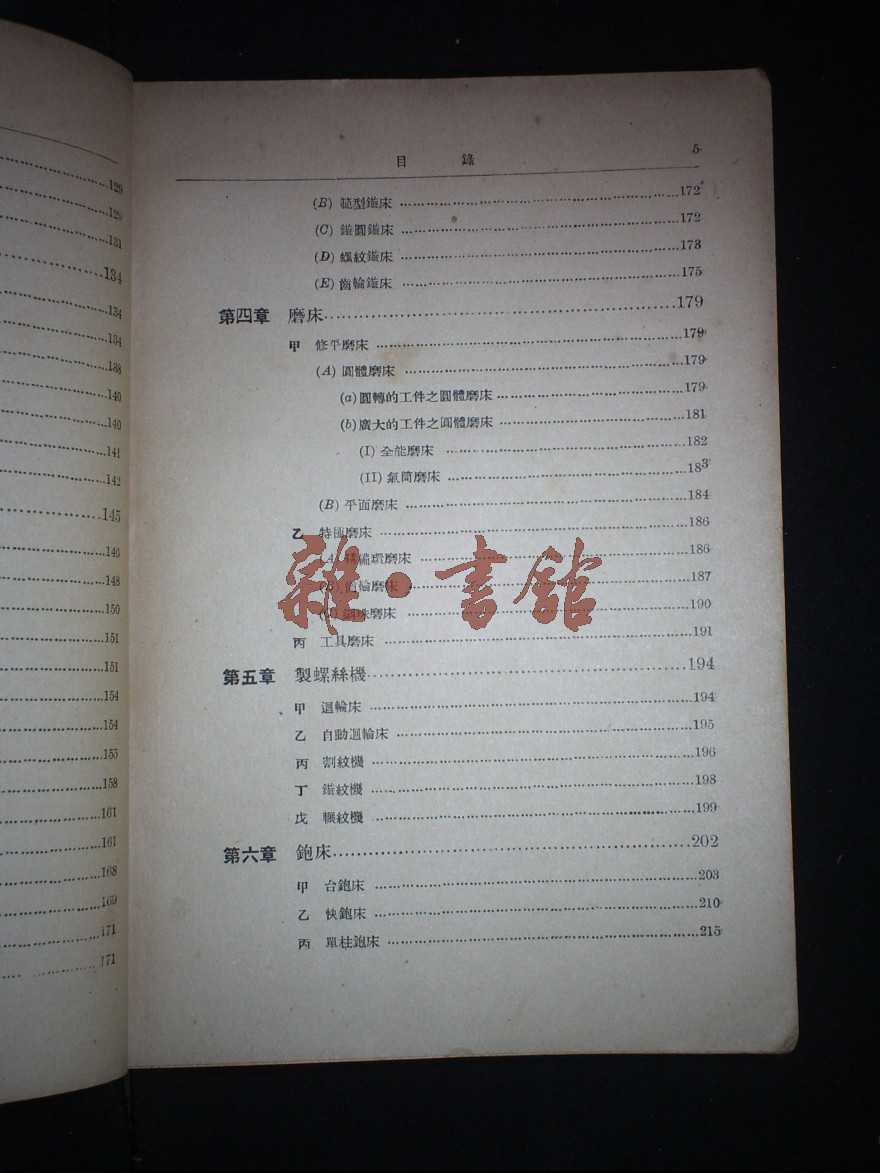 129
129
131
134
134
134
138
140
140
141
142
145
146
148
150
151
151
154
154
155
158
161
161
168
169
171
171
目 錄 5
(B) 範型鏇床 172
(C) 鏇圓鏇床 172
(D) 螺紋鏇床 173
(E) 齒輪鏇床 175
第四章 磨床 179
甲 修平磨床 179
(A) 圓體磨床 179
(a) 圓轉的工件之圓體磨床 179
(b) 廣大的工件之圓體磨床 181
(I) 全能磨床 182
(II) 氣筒磨床 183
(B) 平面磨床 184
乙 特種磨床 186
環磨床 186
齒輪磨床 187
鋼珠磨床 190
丙 工具磨床 191
第五章 製螺絲機 194
甲 迴輪床 194
乙 自動迴輪床 195
丙 割紋機 196
丁 鏇紋機 198
戊 輾紋機 199
第六章 鉋床 202
甲 台鉋床 203
乙 快鉋床 210
丙 單柱鉋床 215
雜·書館